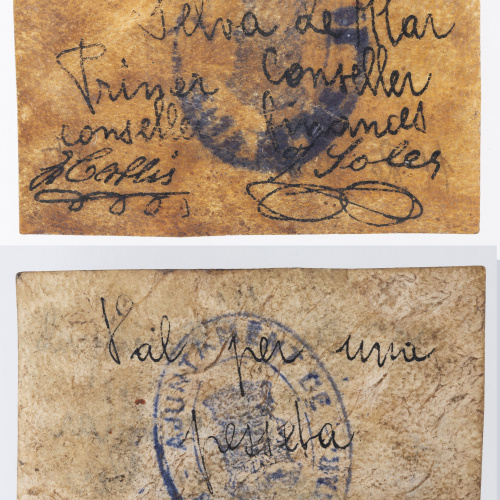 Selva de Mar
Primer Conseller
conseller finances
J Soler
Val per una
pesseta
AJUNTAMENT DE